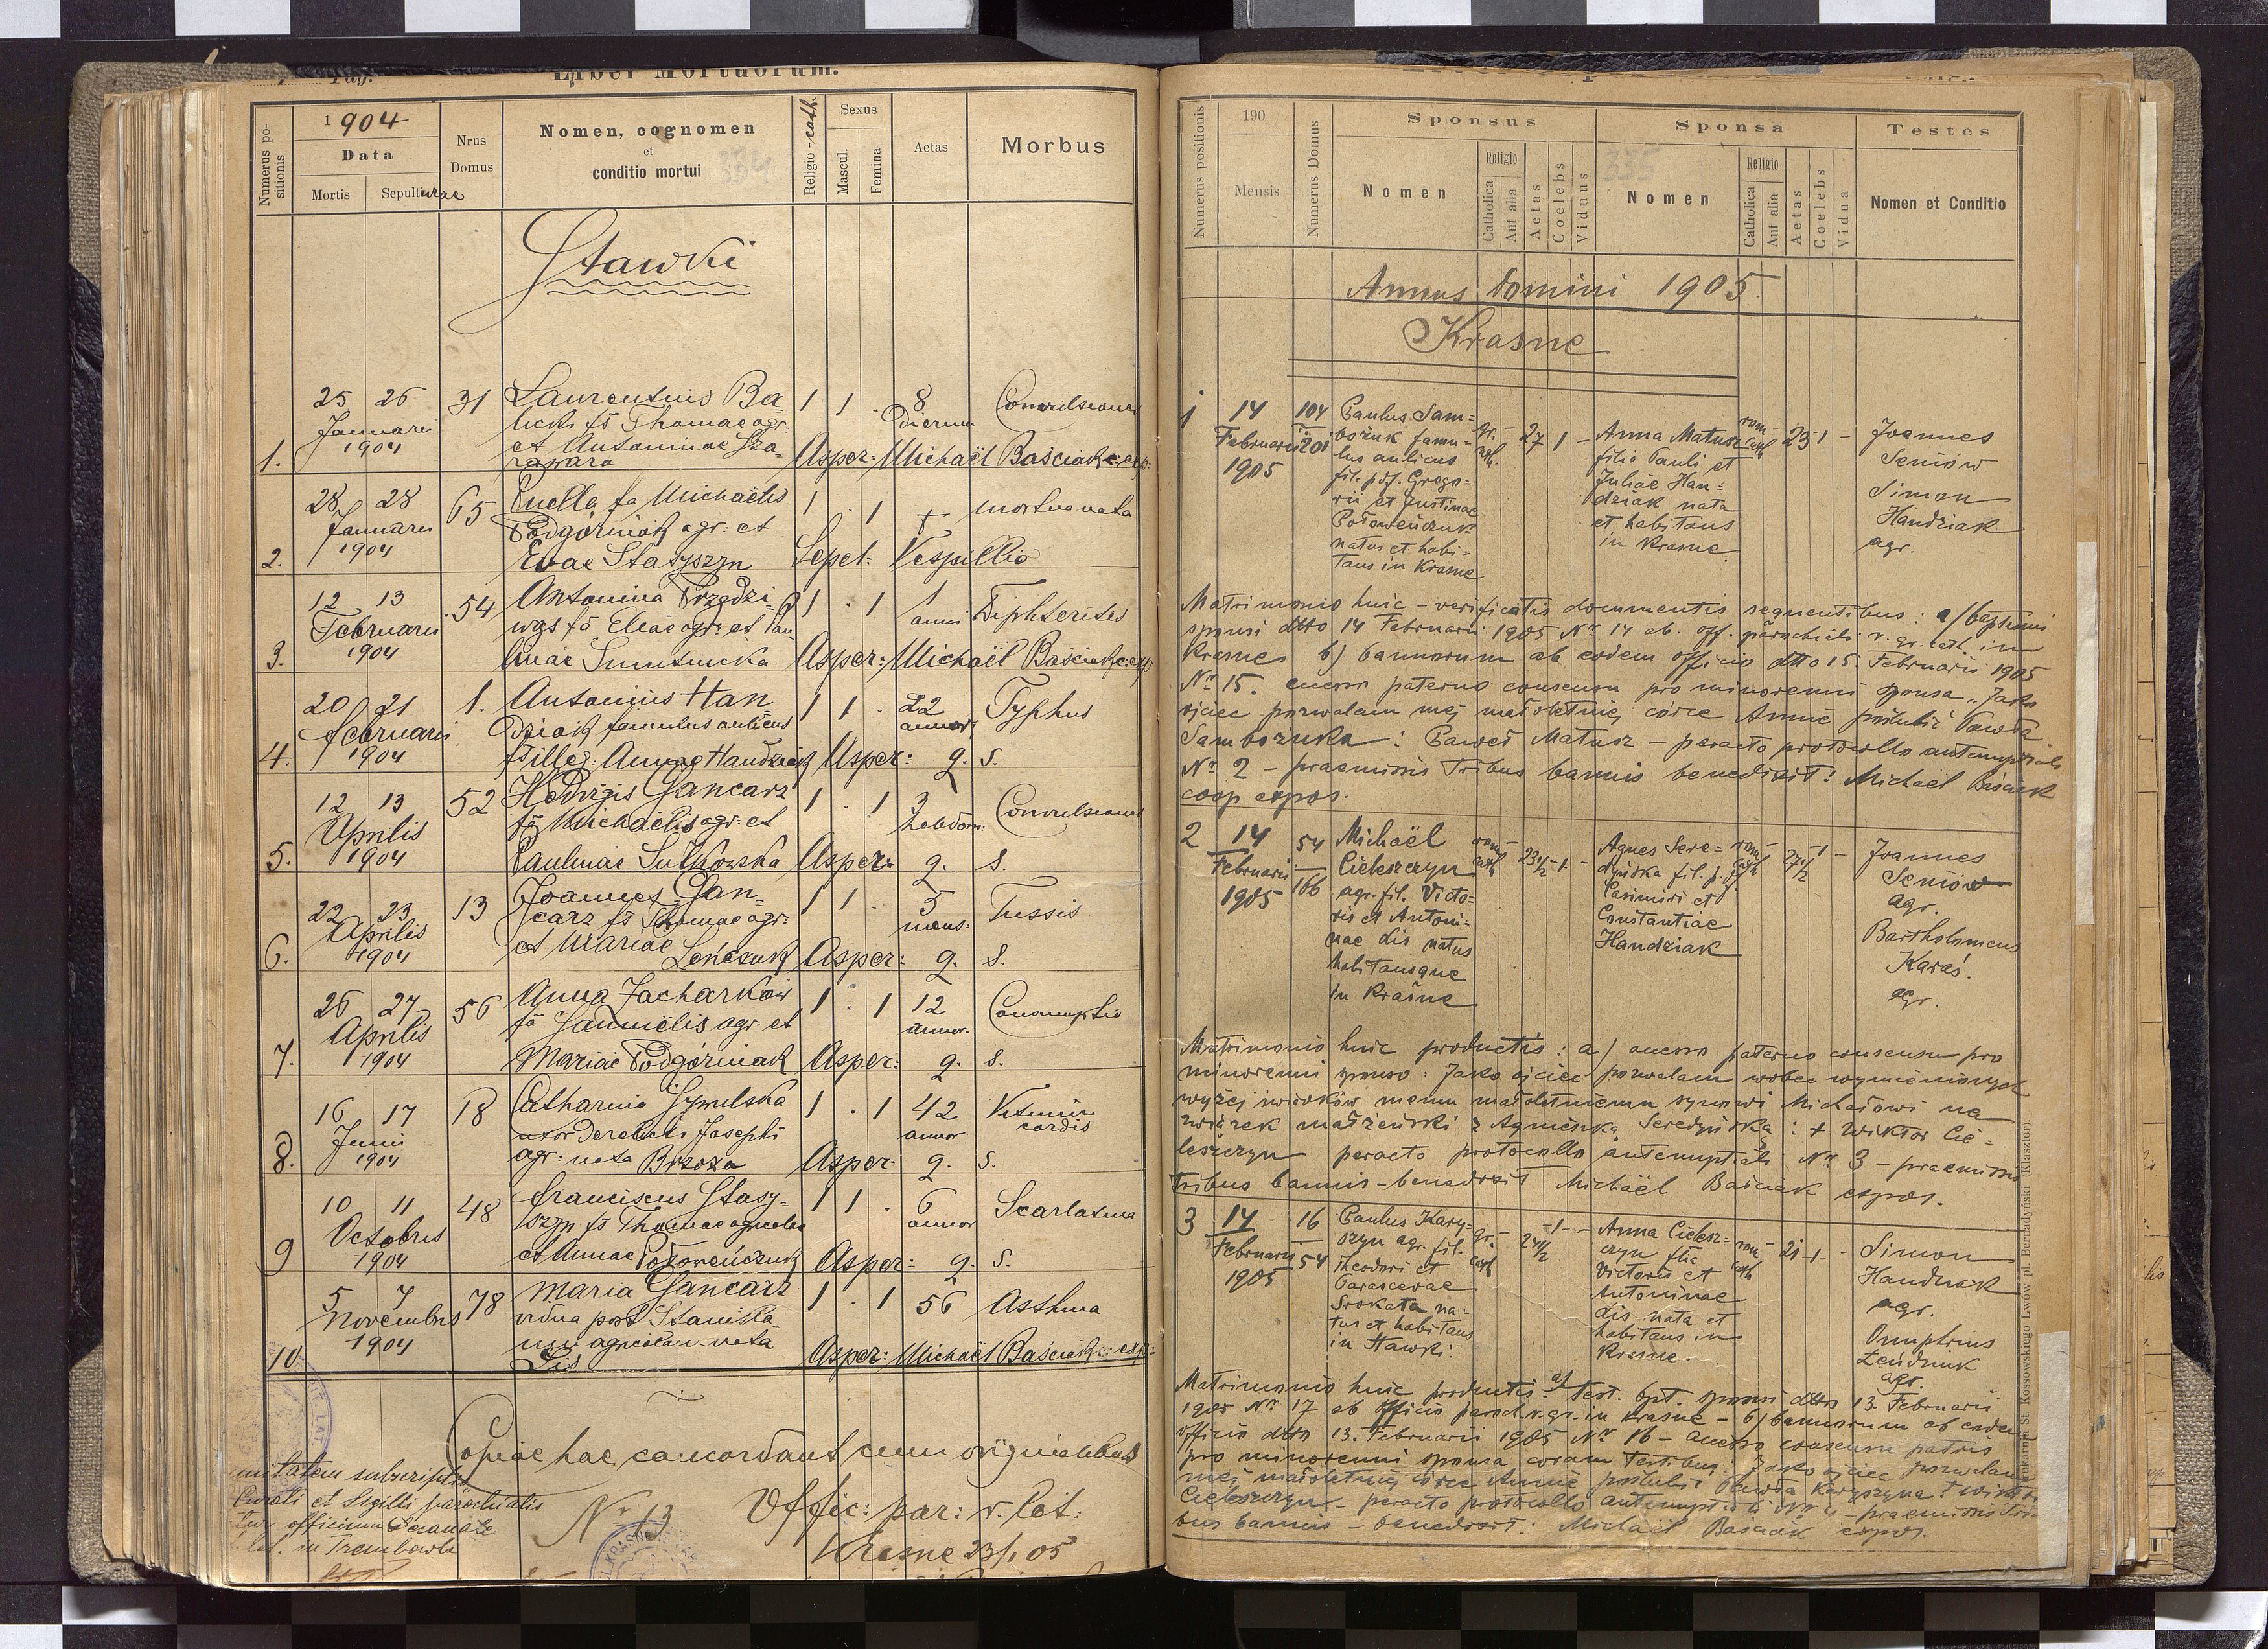 Pag.
Liber Mortuorum.
Numerus positionis
1904
Data
Mortis
Sepulturae
Nrus Domus
Nomen, cognomen
et
conditio mortui
334
Religio-cath.
Sexus
Mascul.
Femina
Aetas
Morbus
Stawki
25 26 31 Laurentius Ba- 1 1 · 8 Convulsiones
Januarii Thomae agr: dierum
1904 et Antoninae Sza-
1. rawara Asper: Michaël Baściak c: exp:
28 28 65 Puella fa Michaëlis 1 · 1 + mortua nata
Januarii Podgórniak agr: et
1904
2. Evae Stasyszyn Sepel: Vespillo
12 13 54 Antonina Przędzi- 1 · 1 1 Diphteritis
Februarii fa Eliae agr: et Pau anni
1904
3. linae Asper: Michaël Baściak c: exp
20 21 1. Antonius Han 1 1 · 22 Typhus
Februarii dziak famulus aulicus annor:
1904
4. f illeg: Annae Handziak Asper: q. s.
12 13 52 Hedvigis Gancarz 1 · 1 3 Convulsiones
Aprilis fa Michaëlis agr: et hebdom:
1904
5. Paulinae Sułkowska Asper: q. s.
22 23 13 Joannes Gan- 1 1 · 5 Tussis
Aprilis carz fs Thomae agr: mens:
1904 et Mariae
6. Leńczuk Asper: q. s.
26 27 56 Anna Zacharków 1 · 1 12 Consumptio
Aprilis fa agr: et annor.
1904
7. Mariae Podgórniak Asper: q. s.
16 17 18 Catharina 1 · 1 42 Vitium
Junii uxor derelicta Josephi annor cordis
1904 agr: nata Brzoza
8. Asper: q. s.
10 11 48 Franciscus Stasy- 1 1 · 6 Scarlatina
Octobris szyn fs Thomae agricolae annor
1904
9 et Annae Połoweńczuk Asper: q. s.
5 7 78 Maria Gancarz 1 · 1 56 Asthma
Novembris vidua post Stanisla-
1904 agricola nata
10 Lis Asper: Michaël Baściak c: exp:
Copiae hae concordant cum originalibus
subscripti
Curati et sigilli parochialis
officium Decanale
lat. in Trembowla
Nr 13 Offic: par: r. lat:
Krasne 23/1 05
Numerus positionis
190
Mensis
Numerus Domus
Sponsus
Nomen
Religio
Catholica
Aut alia
Aetas
Coelebs
Viduus
335
Sponsa
Nomen
Religio
Catholica
Aut alia
Aetas
Coelebs
Vidua
Testes
Nomen et Conditio
Annus Domini 1905.
Krasne
1
14
Februarii
1905
104
201
Paulus Sam=
bożuk famu=
lus aulicus
fil. pdf. Grego=
rii et Justinae
Połoweńczuk
natus et habi=
tans in Krasne
gr. cath.
27 1 -
Anna Matusz
filia Pauli et
Juliae Han=
dziak nata
et habitans
in Krasne
rom cath
23 1 -
Joannes
Seniów
Simon
Handziak
agr.
Matrimonio huic - verificatis documentis sequentibus: a/ baptismi
sponsi dtto 14 Februarii 1905 Nr 14 ab. off. parochiali r. gr. cath. in
Krasne b) bannorum ab eodem officio dtto 15. Februarii 1905
Nr 15. accesso paterno consensu pro minorenni sponsa. Jako
ojciec pozwalam mej małoletniej córce Annie poślubić Pawła
Sambożuka: Paweł Matusz - peracto protocollo antenuptiali
Nr 2 - praemissis tribus bannis benedixit: Michaël Baściak
coop expos.
2
14
Februarii
1905
54
166
Michaël
Cieleszczyn
agr. fil. Victo=
ris et Antoni=
nae Lis natus
habitansque
in Krasne
rom cath
23 1/2 1. -
Agnes Sere=
dyńska fil. pdf
Casimiri et
Constantiae
Handziak
rom cath
27 1/2 1 -
Joannes
Seniów
agr.
Bartholomeus
Karaś.
agr.
Matrimonio huic productis: a) accesso paterno consensu pro
minorenni sponso: Jako ojciec pozwalam wobec wymienionych
wyżej świadków memu małoletniemu synowi Michałowi na
związek małżeński z Agnieszką Seredyńską: + Wiktor Cie=
leszczyn peracto protocollo antenuptiali Nr 3 - praemissis
tribus bannis - benedixit Michaël Baściak expos.
3
14
Februarii
1905
16
54
Paulus Kary=
szyn agr. fil.
Theodori et
Parascevae
Srokata na=
tus et habitans
in Stawki.
gr. cath
24 1/2 1 -
Anna Cielesz=
czyn fila
Victoris et
Antoninae
Lis nata et
habitans in
Krasne.
rom cath
21 1 -
Simon
Handziak
agr.
Onuphrius
agr.
Matrimonio huic productis: a) test. bpt. sponsi dtto 13. Februarii
1905 Nr 17 ab officio paroch. r. gr. in Krasne - b) bannorum ab eodem
officio dtto 13. Februarii 1905 Nr 16 - accesso consensu patris
pro minorenni sponsa coram testibus: Jako ojciec pozwalam
mej małoletniej córce Annie poślubić Pawła Karyszyna: + Wiktor
Cieleszczyn - peracto protocollo antenuptiali Nr 4 - praemissis tri
bus bannis - benedixit: Michaël Baściak expos.
Drukarnia St. Kossowskiego Lwów pl. Bernadyński (Klasztor).